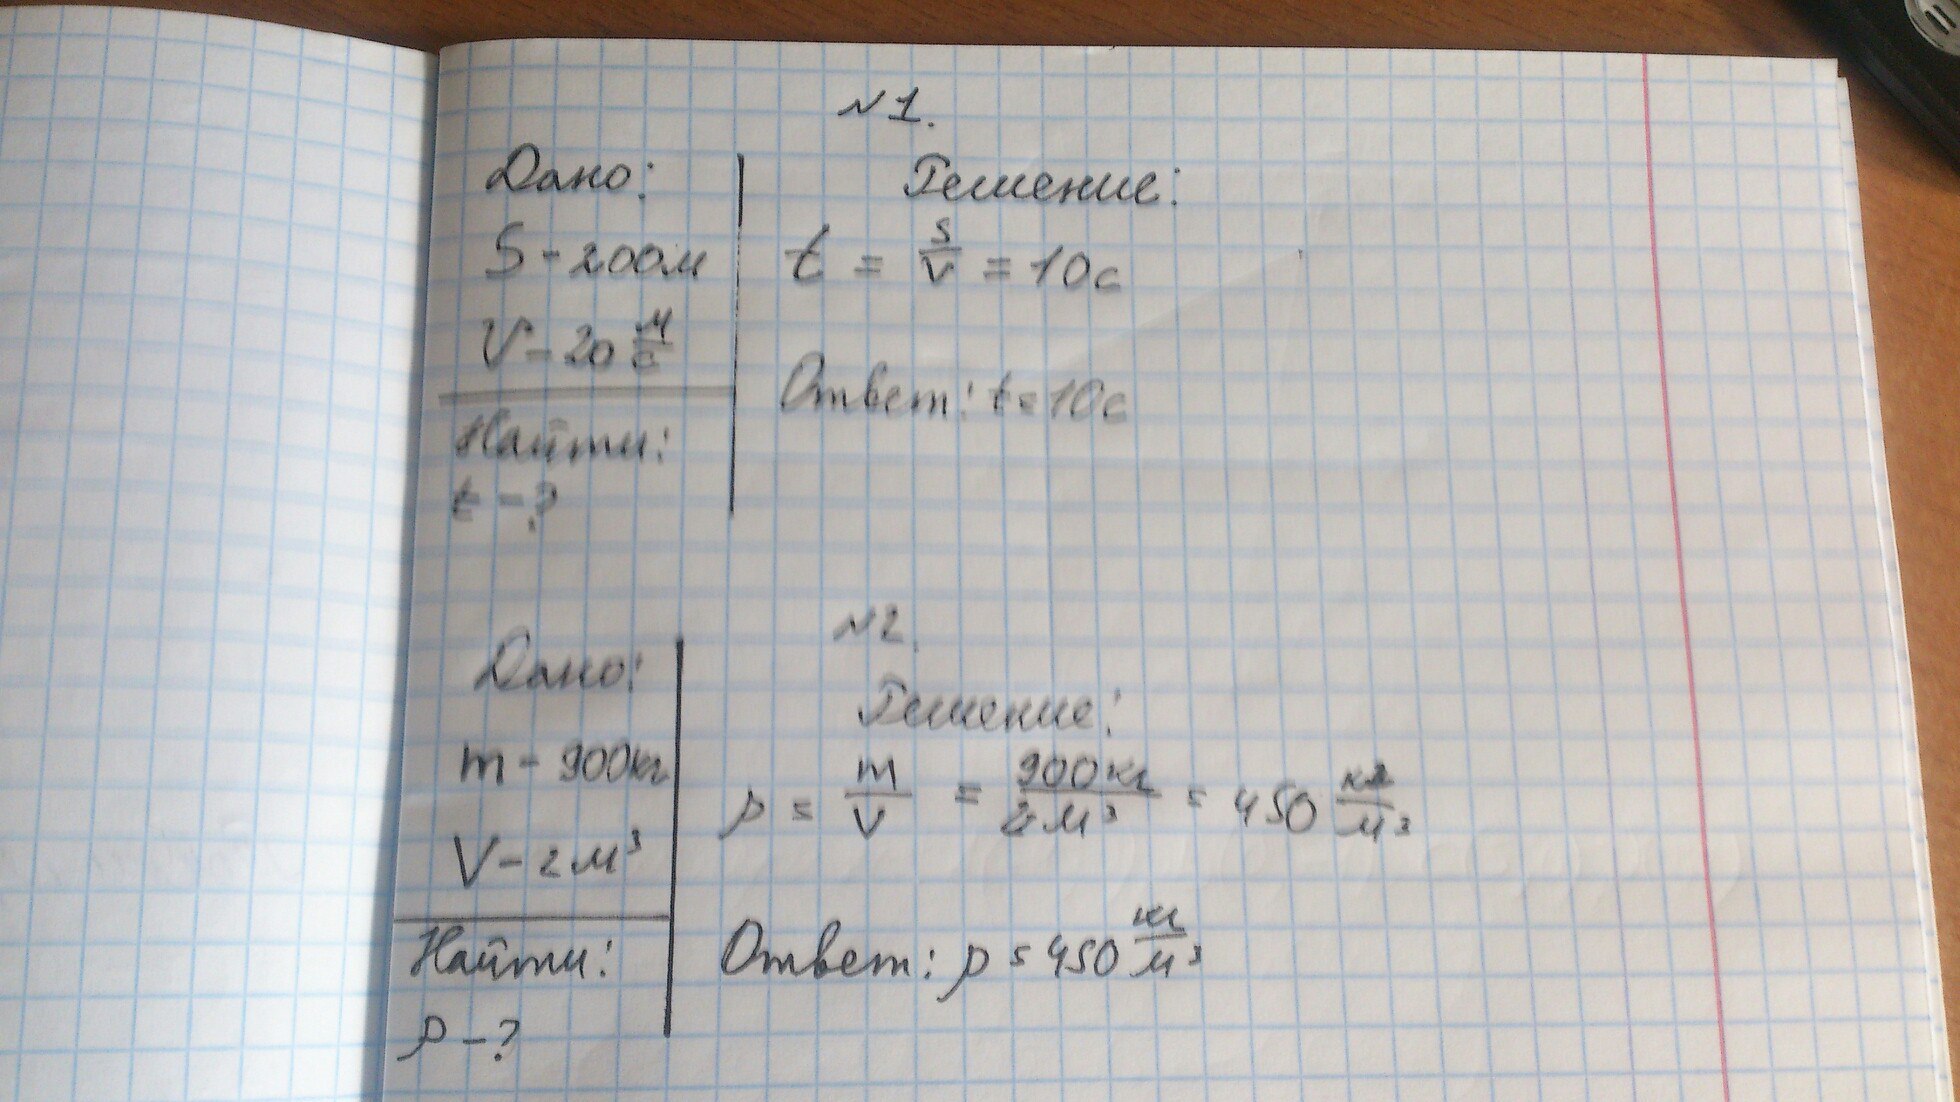 N1.
Дано:
S - 200м
V - 20 м/с
Найти:
t - ?
Решение:
t = S/V = 10с
Ответ: t = 10с
N2.
Дано:
m - 900кг
V - 2м³
Найти:
ρ - ?
Решение:
ρ = m/V = 900кг/2м³ = 450 кг/м³
Ответ: ρ = 450 кг/м³